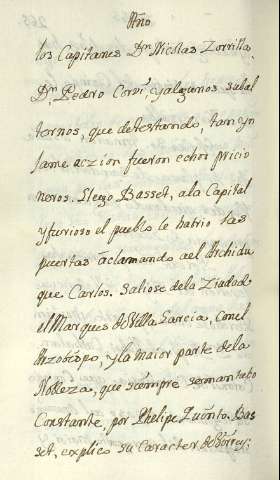 Año
los Capitanes Dn Nicolas Zorrilla,
Dn Pedro Corvi, y algunos subal
ternos, que detestando, tam yn
fame aczion fueron echos pricio
neros. Llego Basset, a la Capital
y furioso el pueblo le habrio las
puertas aclamando a el Archidu
que Carlos. Saliose de la Ziudad
el Marques de Villa Garcia, con el
Arzobispo, y la maior parte de la
Nobleza, que siempre se mantubo
Constante, por Phelipe Quinto. Bas
set, explico su Caracter de Virrey;